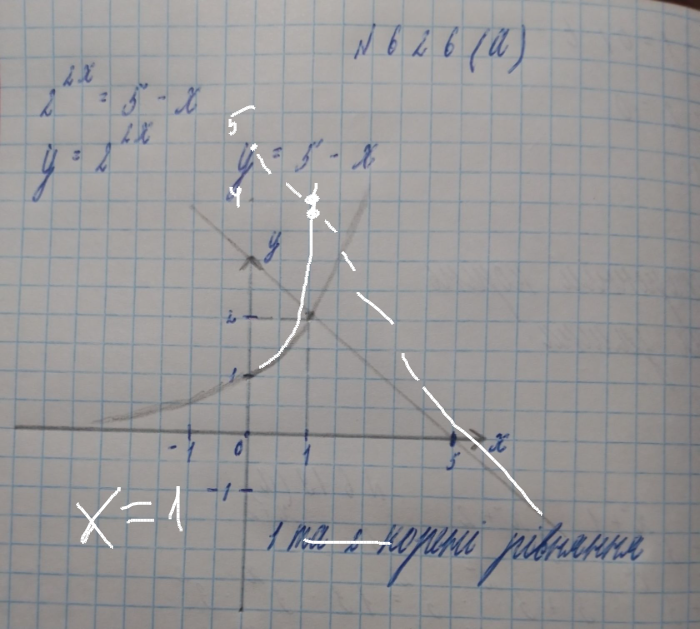 № 626 (а)
2^2x = 5 - x
y = 2^2x
y = 5 - x
5
4
y
2
1
-1 0 1 5 x
-1
x = 1
1 та 2 корені рівняння